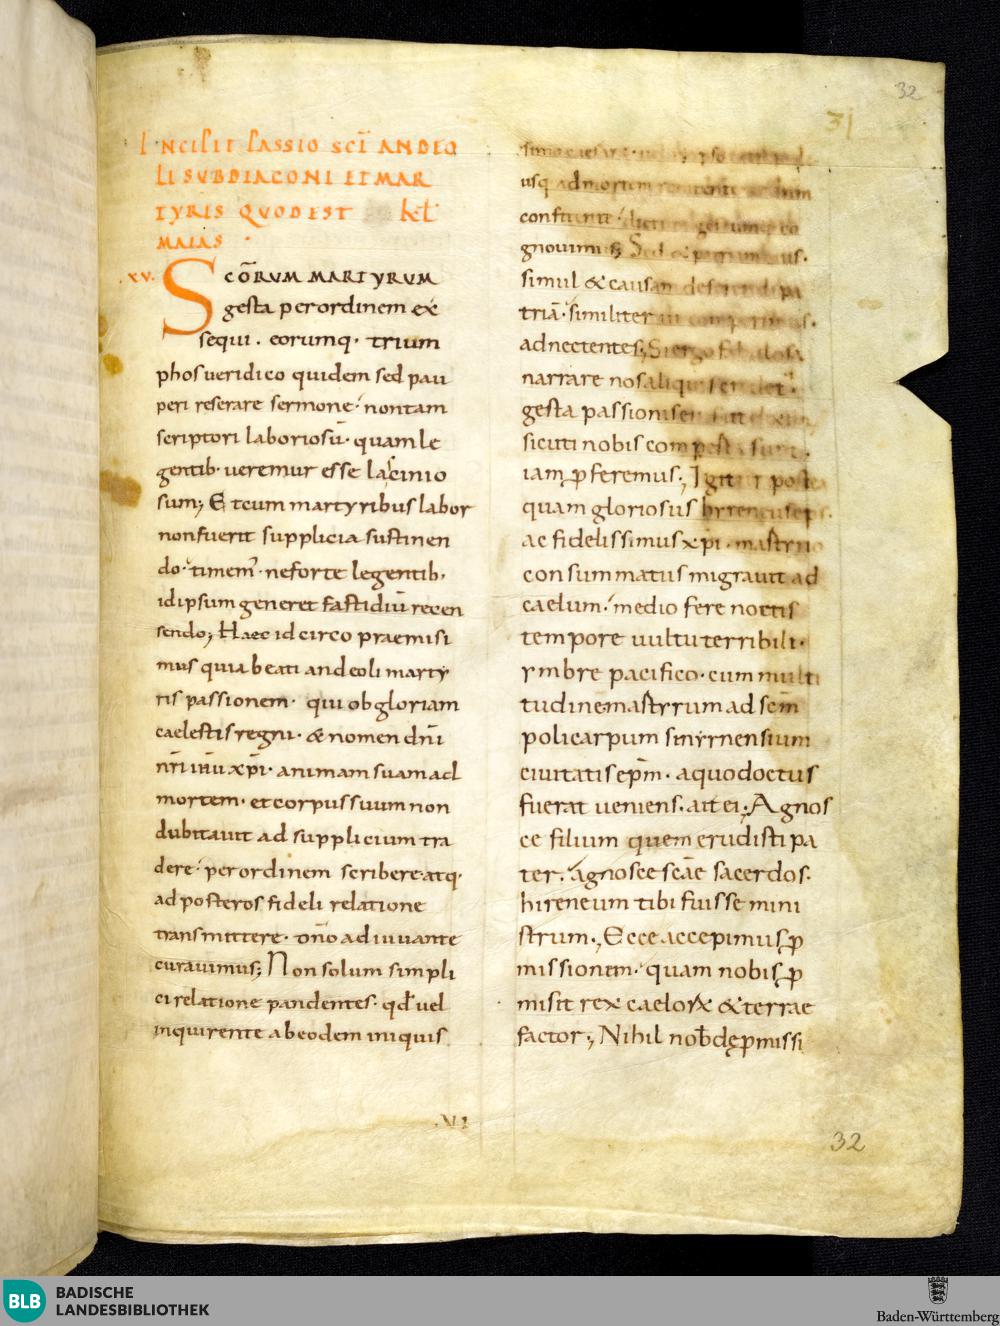 32
31
INCIPIT PASSIO SCĪ ANDEO
LI SUBDIACONI ET MAR
TYRIS QUOD EST KƚL
MAIAS
.XV.
SCŌRUM MARTYRUM
gesta perordinem ex
sequi. eorumq· trium
phos ueridico quidem sed pau
peri reserare sermone· nontam
scriptori laboriosū· quam le
gentib· ueremur esse lacinio
sum; Et cum martyribus labor
nonfuerit supplicia sustinen
do· timem̄· neforte legentib·
idipsum generet fastidiū recen
sendo; Haec idcirco praemisi
mus quia beati andeoli marty
ris passionem· qui ob gloriam
caelestis regni· & nomen dn̄i
nr̄i ihū xp̄i· animam suam ad
mortem· et corpus suum non
dubitauit ad supplicium tra
dere· perordinem scribere· atq·
ad posteros fideli relatione
transmittere· dn̄o adiuuante
curauimus; Non solum simpli
ci relatione pandentes· qđ uel
inquirente abeodem iniquis
.VI
simo caesare·
usq· admortem
confitente·
gnouimus; Sed
simul & causam descendi pa
triā· similiter
adnectentes; Si ergo fabulosa
narrare nos aliquis
gesta passionis
sicuti nobis comperta sunt·
iam ꝓferemus; Igitur post
quam gloriosus hyreneus eps·
ac fidelissimus xp̄i· mastyrio
consummatus migrauit ad
caelum· medio fere noctis
tempore uultu terribili·
ymbre pacifico· cum multi
tudine mastyrum ad scm̄
policarpum smyrnensium
ciuitatis ep̄m· a quo doctus
fuerat ueniens· ait ei; Agnos
ce filium quem erudisti pa
ter· agnosce scāe sacerdos·
hireneum tibi fuisse mini
strum; Ecce accepimus ꝓ
missionem· quam nobis ꝓ
misit rex caelorꝝ & terrae
factor; Nihil nob̄ de ꝓmissi
32
BLB BADISCHE
LANDESBIBLIOTHEK
Baden-Württemberg